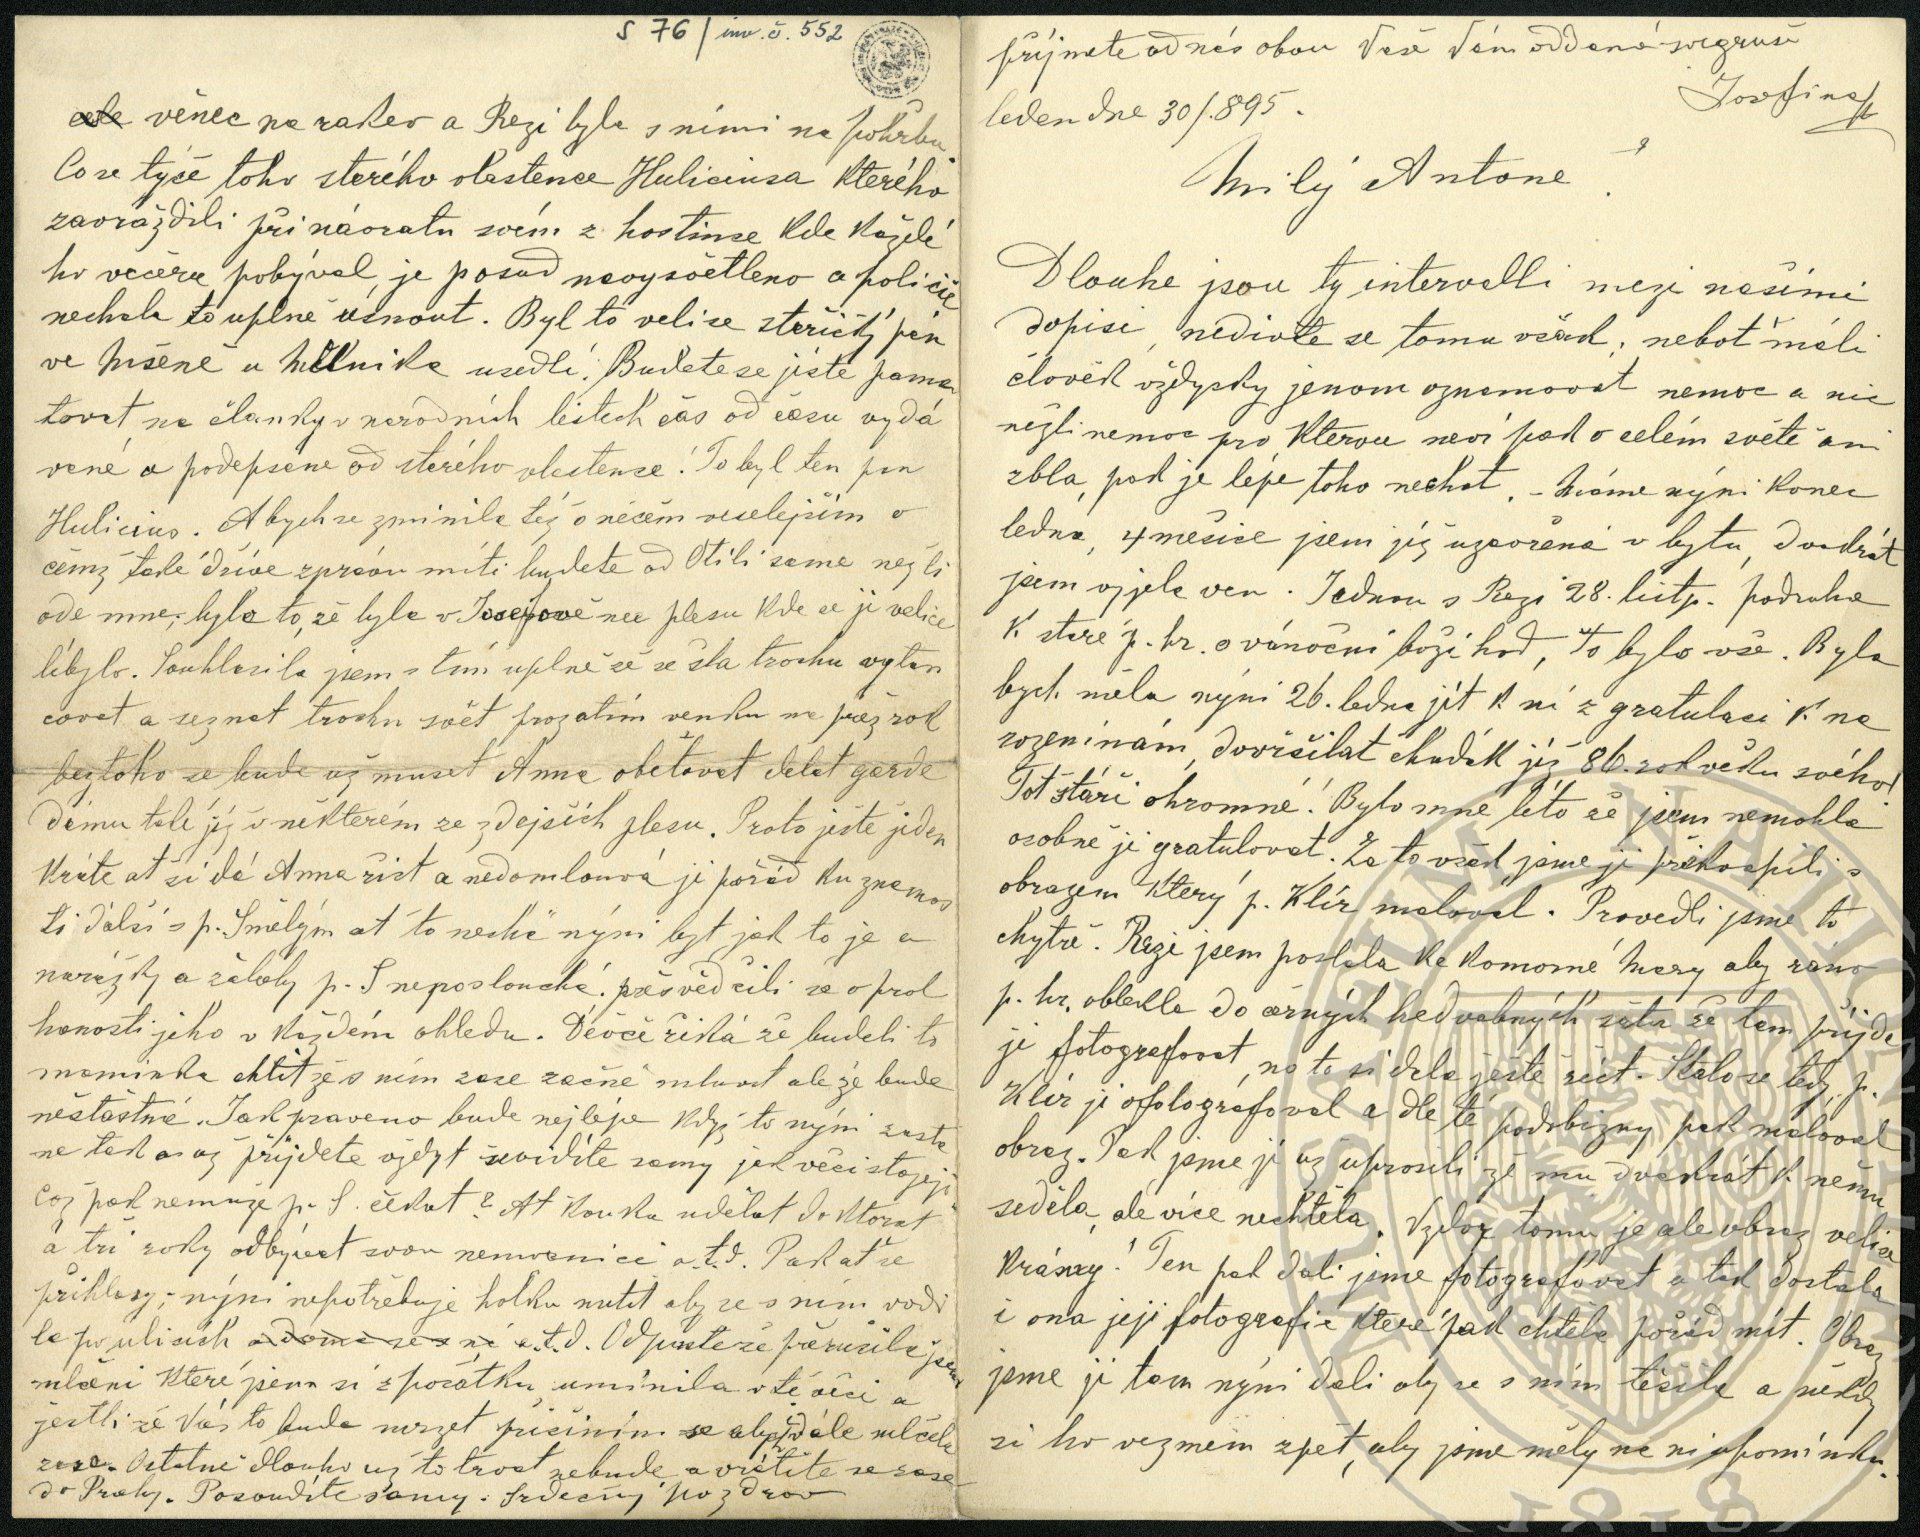 S 76 / inv. č. 552
věnec na rakev a Rezi byla s nimi na pohřbu.
Co se týče toho starého vlastence Huliciusa kterého
zavraždili při návratu svém z hostince kde každé
ho večera pobýval, je posud nevysvětleno a policie
nechala to uplně usnout. Byl to velice stařičký pán
ve Mšeně u Mělníka usedlí. Budete se jistě pama
tovat na články v narodních listech čas od času vydá
vané a podepsane od starého vlastence! To byl ten pan
Hulicius. Abych se zminila též o něčem veselejším o
čemž také dříve zprávu míti budete od Otili same nežli
ode mne; bylo to, že byla v Josefově na plesu kde se ji velice
líbylo. Souhlasila jsem s tím uplně že se šla trochu vytan
covat a seznat trochu svět prozatím venku na přez rok
beztoho se bude už muset Anna obětovat dělat garde
dámu také již v některém ze zdejších plesu. Proto ještě jeden
kráte ať si dá Anna říct a nedomlouvá ji pořád ku znamos
ti další s p. Smělým at to nechá nyni byt jak to je a
narážky a žaloby p. S neposlouchá. přesvědčili se o prol
hanosti jeho v každém ohledu. Děvče říká že budeli to
maminka chtít že s ním zase začne mluvit ale že bude
nešťastná. Jak praveno bude nejlépe když to nýni zusta
ne tak a až přijdete vždyt uvidíte samy jak věci stojeji
Což pak nemuže p. S. čekat? At kouka udělat doktorat
a tři roky odbývat svou nemocnici a.t.d. Pak ať se
přihlasy; nýni nepotřebuje holku nutit aby se s ním vodi
la po ulicích a doma se s ní a.t.d. Odpusťte že přerušila jsem
mlčeni které jsem si z počátku umínila v té věci a
jestli že Vás to bude mrzet přičiním se abych dále mlčela
zase. Ostatně dlouho už to trvat nebude a vrátíte se zase
do Prahy. Posoudíte samy. Srdečný pozdrav
přijmete od nás obou Vaše Vám oddaná svegruše
Josefina
leden dne 30/.895.
Milý Antone!
Dlouhe jsou ty intervalli mezi našimi
dopisi, nedivte se tomu však, neboť máli
člověk vždycky jenom oznamovat nemoc a nic
nežli nemoc pro kterou neví pak o celém světě ani
zbla, pak je lépe toho nechat. – Máme nýni konec
ledna, 4 měsíce jsem již uzavřená v bytu, dvakrát
jsem vyjela ven. Jednou s Rezi 28. listp. podruhe
k staré p. hr. o vánoční boží hod, to bylo vše. Byla
bych měla nýni 26. ledna jít k ní z gratulaci k na
rozeninám, dovršilať chudák již 86. rok věku svého!
Toť stáří ohromné! Bylo mne líto že jsem nemohla
osobně jí gratulovat. Za to však jsme ji překvapili s
obrazem který p. Klír maloval. Provedli jsme to
chytře. Rezi jsem poslala ke komorné Mary aby ráno
p. hr. oblekla do černých hedvabných šatu že tam přijde
ji fotografovat, na to si dala ještě říct. Stalo se tedy, p.
Klír ji ofotografoval a dle té podobizny pak maloval
obraz. Pak jsme jí už uprosili že mu dvakrát k němu
seděla, ale více nechtěla. Vzdor tomu je ale obraz velice
krásný! Ten pak dali jsme fotografovat a tak dostala
i ona její fotografie které pak chtěla pořád mít. Obraz
jsme ji tam nýni dali aby se s ním těšila a někdy
si ho vezmem zpět, aby jsme měly na ni upomínku.